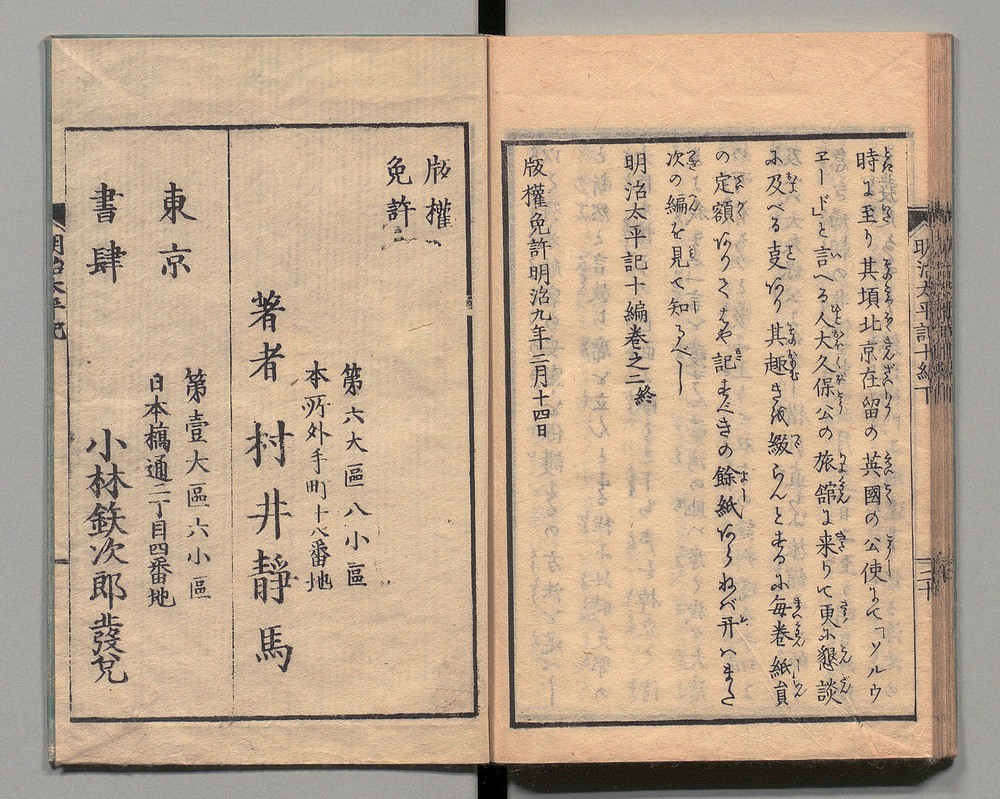 時に至り其頃北京在留の英國の公使にて「ソルウ
ヱード」と言へる人大久保公の旅舘に来りて更に懇談
に及べる事あり其趣きを綴らんとするに毎巻紙員
の定額ありてもはや記すべきの餘紙あらねバ开ハまた
次の編を見て知るべし
明治太平記十編巻之二終
版權免許明治九年二月十四日
明治太平記十編下
三十
版權
免許
第六大區八小區
本所外手町十八番地
著者 村井靜馬
東京
第壹大區六小區
日本橋通二丁目四番地
書肆
小林鉄次郎發兌
明治太平記